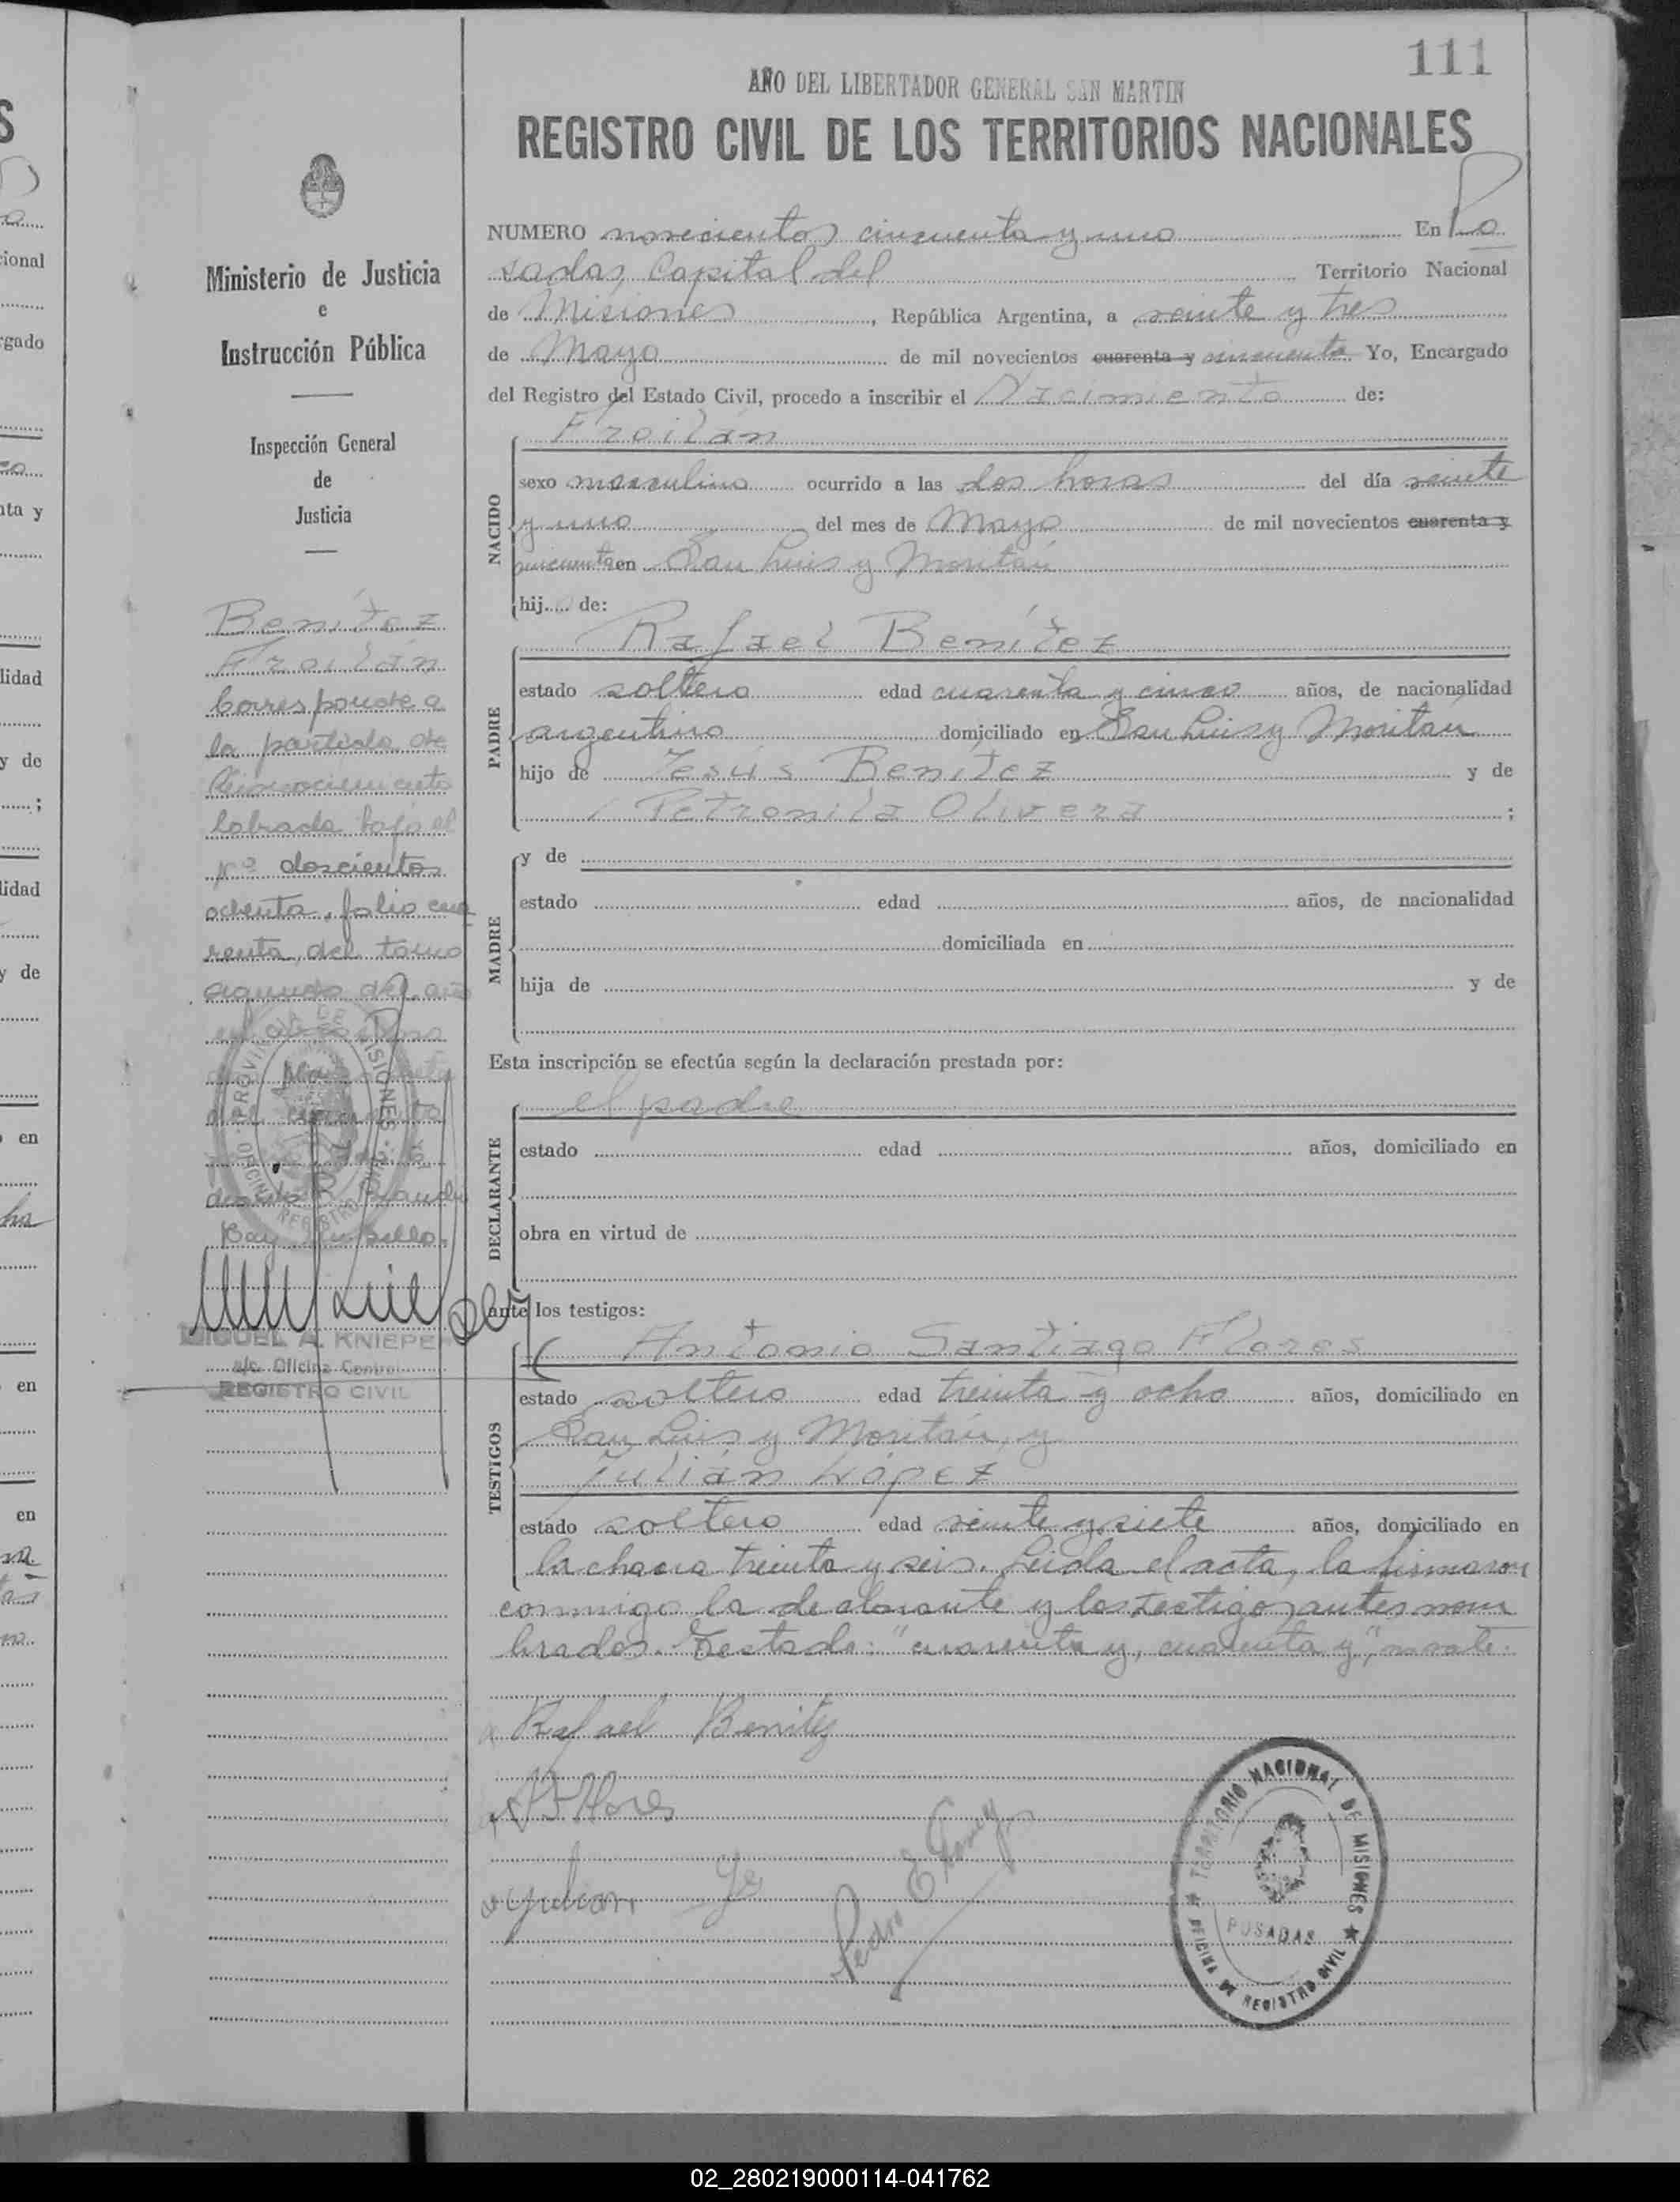 111
AÑO DEL LIBERTADOR GENERAL SAN MARTIN
REGISTRO CIVIL DE LOS TERRITORIOS NACIONALES
NUMERO novecientos cincuenta y uno En Po
sadas, Capital del Territorio Nacional
de Misiones, República Argentina, a veinte y tres
de Mayo de mil novecientos cuarenta y cincuenta Yo, Encargado
del Registro del Estado Civil, procedo a inscribir el Nacimiento de:
NACIDO
Froilán
sexo masculino ocurrido a las dos horas del día veinte
y uno del mes de Mayo de mil novecientos cuarenta y
cincuenta en San Luis y Moritán
hij.... de:
PADRE
Rafael Benítez
estado soltero edad cuarenta y cinco años, de nacionalidad
argentino domiciliado en San Luis y Moritán
hijo de Jesús Benítez y de
Petronila Olivera ;
MADRE
y de
estado edad años, de nacionalidad
domiciliada en
hija de y de
Esta inscripción se efectúa según la declaración prestada por:
DECLARANTE
el padre
estado edad años, domiciliado en
obra en virtud de
ante los testigos:
TESTIGOS
Antonio Santiago Flores
estado soltero edad treinta y ocho años, domiciliado en
San Luis y Moritán, y
Julián López
estado soltero edad veinte y siete años, domiciliado en
la chacra treinta y seis. Leida el acta, la firmaron
conmigo la declarante y los testigos antes nom
brados. Testado: "cuarenta y, cuarenta y", no vale.
Rafael Benitez
A S Flores
Julian
Pedro E
TERRITORIO NACIONAL DE MISIONES
POSADAS
OFICINA DE REGISTRO CIVIL
Ministerio de Justicia
e
Instrucción Pública
Inspección General
de
Justicia
Benítez
Froilán
Corresponde a
la partida de
Reconocimiento
labrada bajo el
Nº doscientos
ochenta, folio cua
renta, del tomo
segundo del año
PROVINCIA DE MISIONES
REGISTRO
MIGUEL A. KNIEPE
a/c. Oficina Central
REGISTRO CIVIL
S
cional
rgado
nta y
lidad
y de
;
lidad
y de
en
en
en
02_280219000114-041762